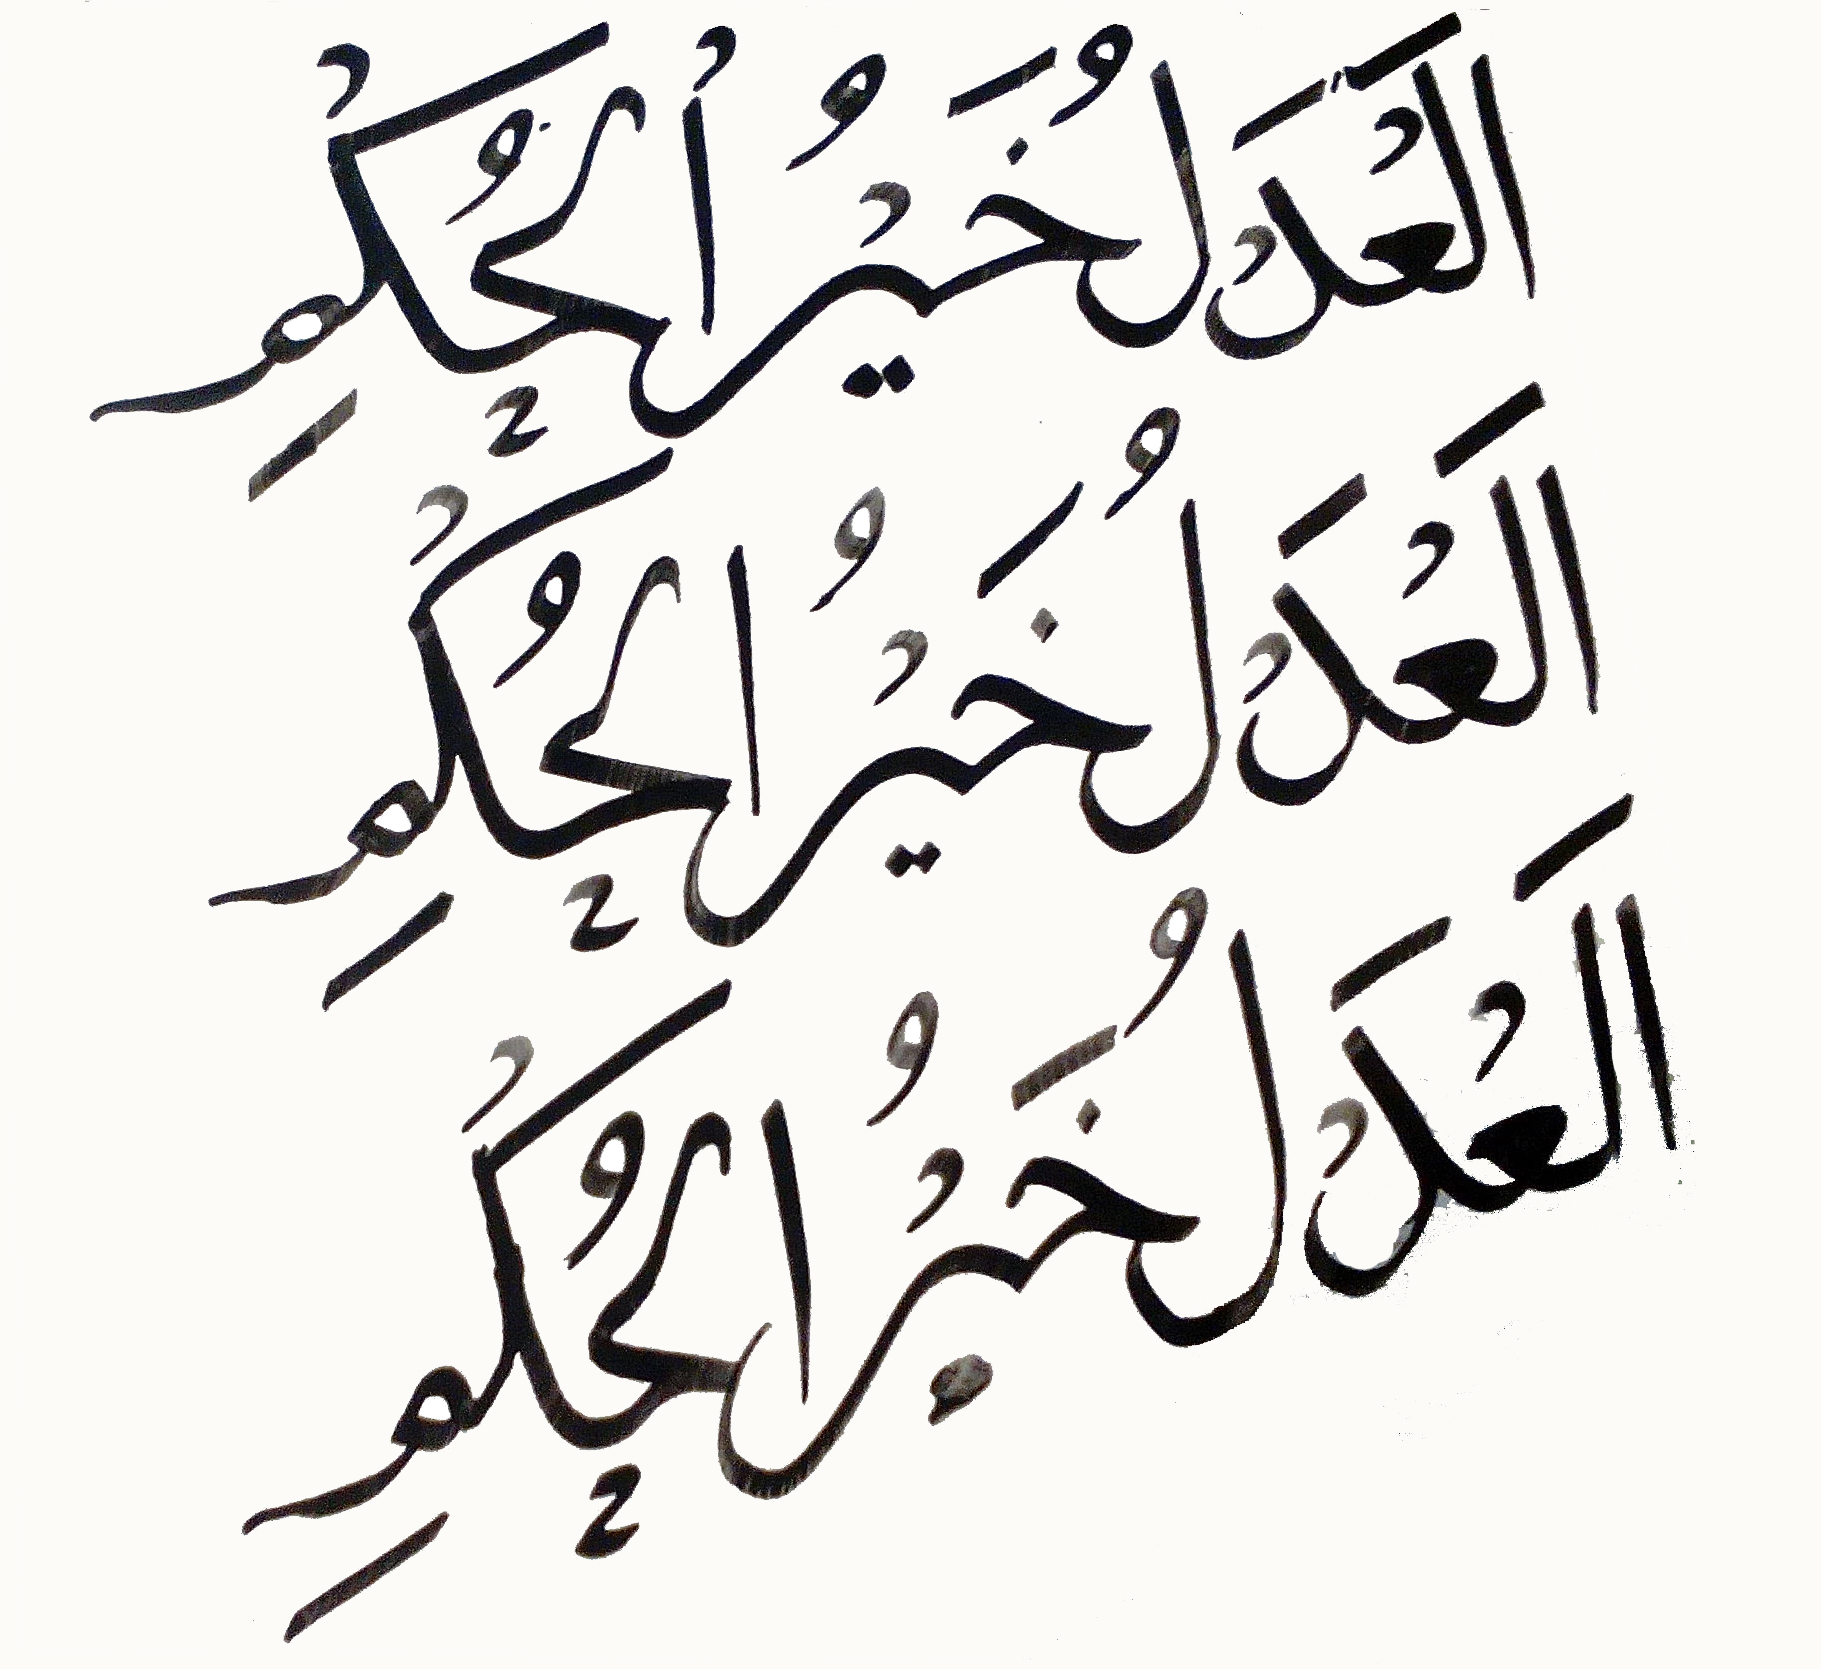 اَلْعَدْلُ خَيْرُ الْحُكْمِ
اَلْعَدْلُ خَيْرُ الحُكْمِ
اَلْعَدْلُ خَيْرُ الحُكْمِ